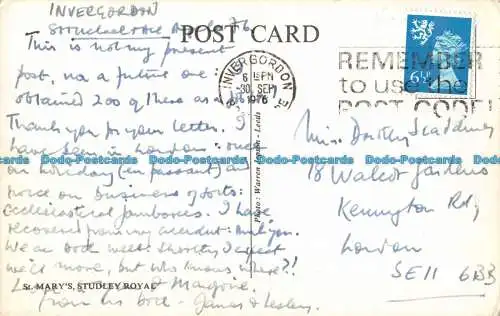 INVERGORDON
76
POST CARD
This is not my present
post, na a future one
obtained 200 of these as a
Thank you for your letter. I
have been in London: once
on holiday (en passant) and
twice on business of sorts:
ecclesiastical jamborees. I have
recovered from my accident: thank you.
We are both well. Shortly I expect
we'll move, but who knows where?!
Love
from us both - James & Lesley.
St. MARY'S, STUDLEY ROYAL
Photo: Warren Leeds
INVERGORDON
6 PM
30 SEP
1976
REMEMBER
to use the
POST CODE!
6½P
Miss Dorothy
18 Walcot Gardens
Kennington Rd,
London
SE11 6BB
Dodo-Postcards Dodo-Postcards Dodo-Postcards Dodo-Postcards Dodo-Postcards